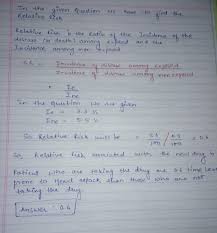 In the given Question we have to find the
Relative Risk
Relative Risk is the Ratio of the Incidence of the
disease (or death) among exposed and the
Incidence among non exposed
R.R = Incidence of disease among exposed
Incidence of disease among non exposed
= Ie
Ine
In the Question we are given
Ie = 3.3 %
Ine = 5.5 %
So Relative Risk will be = 3.3/100 / 5.5/100 = 0.6
So, Relative Risk associated with the new drug is
Patient who are taking the drug are 0.6 time less
prone to than those who are not
taking the drug.
Answer = 0.6